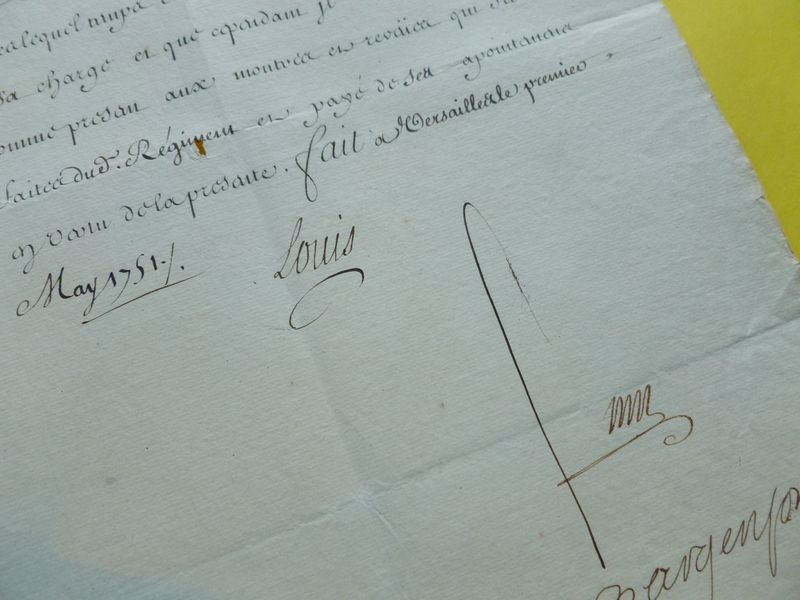 lequel temps
sa charge et que cependant
comme presant aux montres et reveües qui
faites dud. Régiment et payé de ses apointemens
en vertu de la presente. fait a Versailles le premier
May 1751./.
Louis
Dargenso